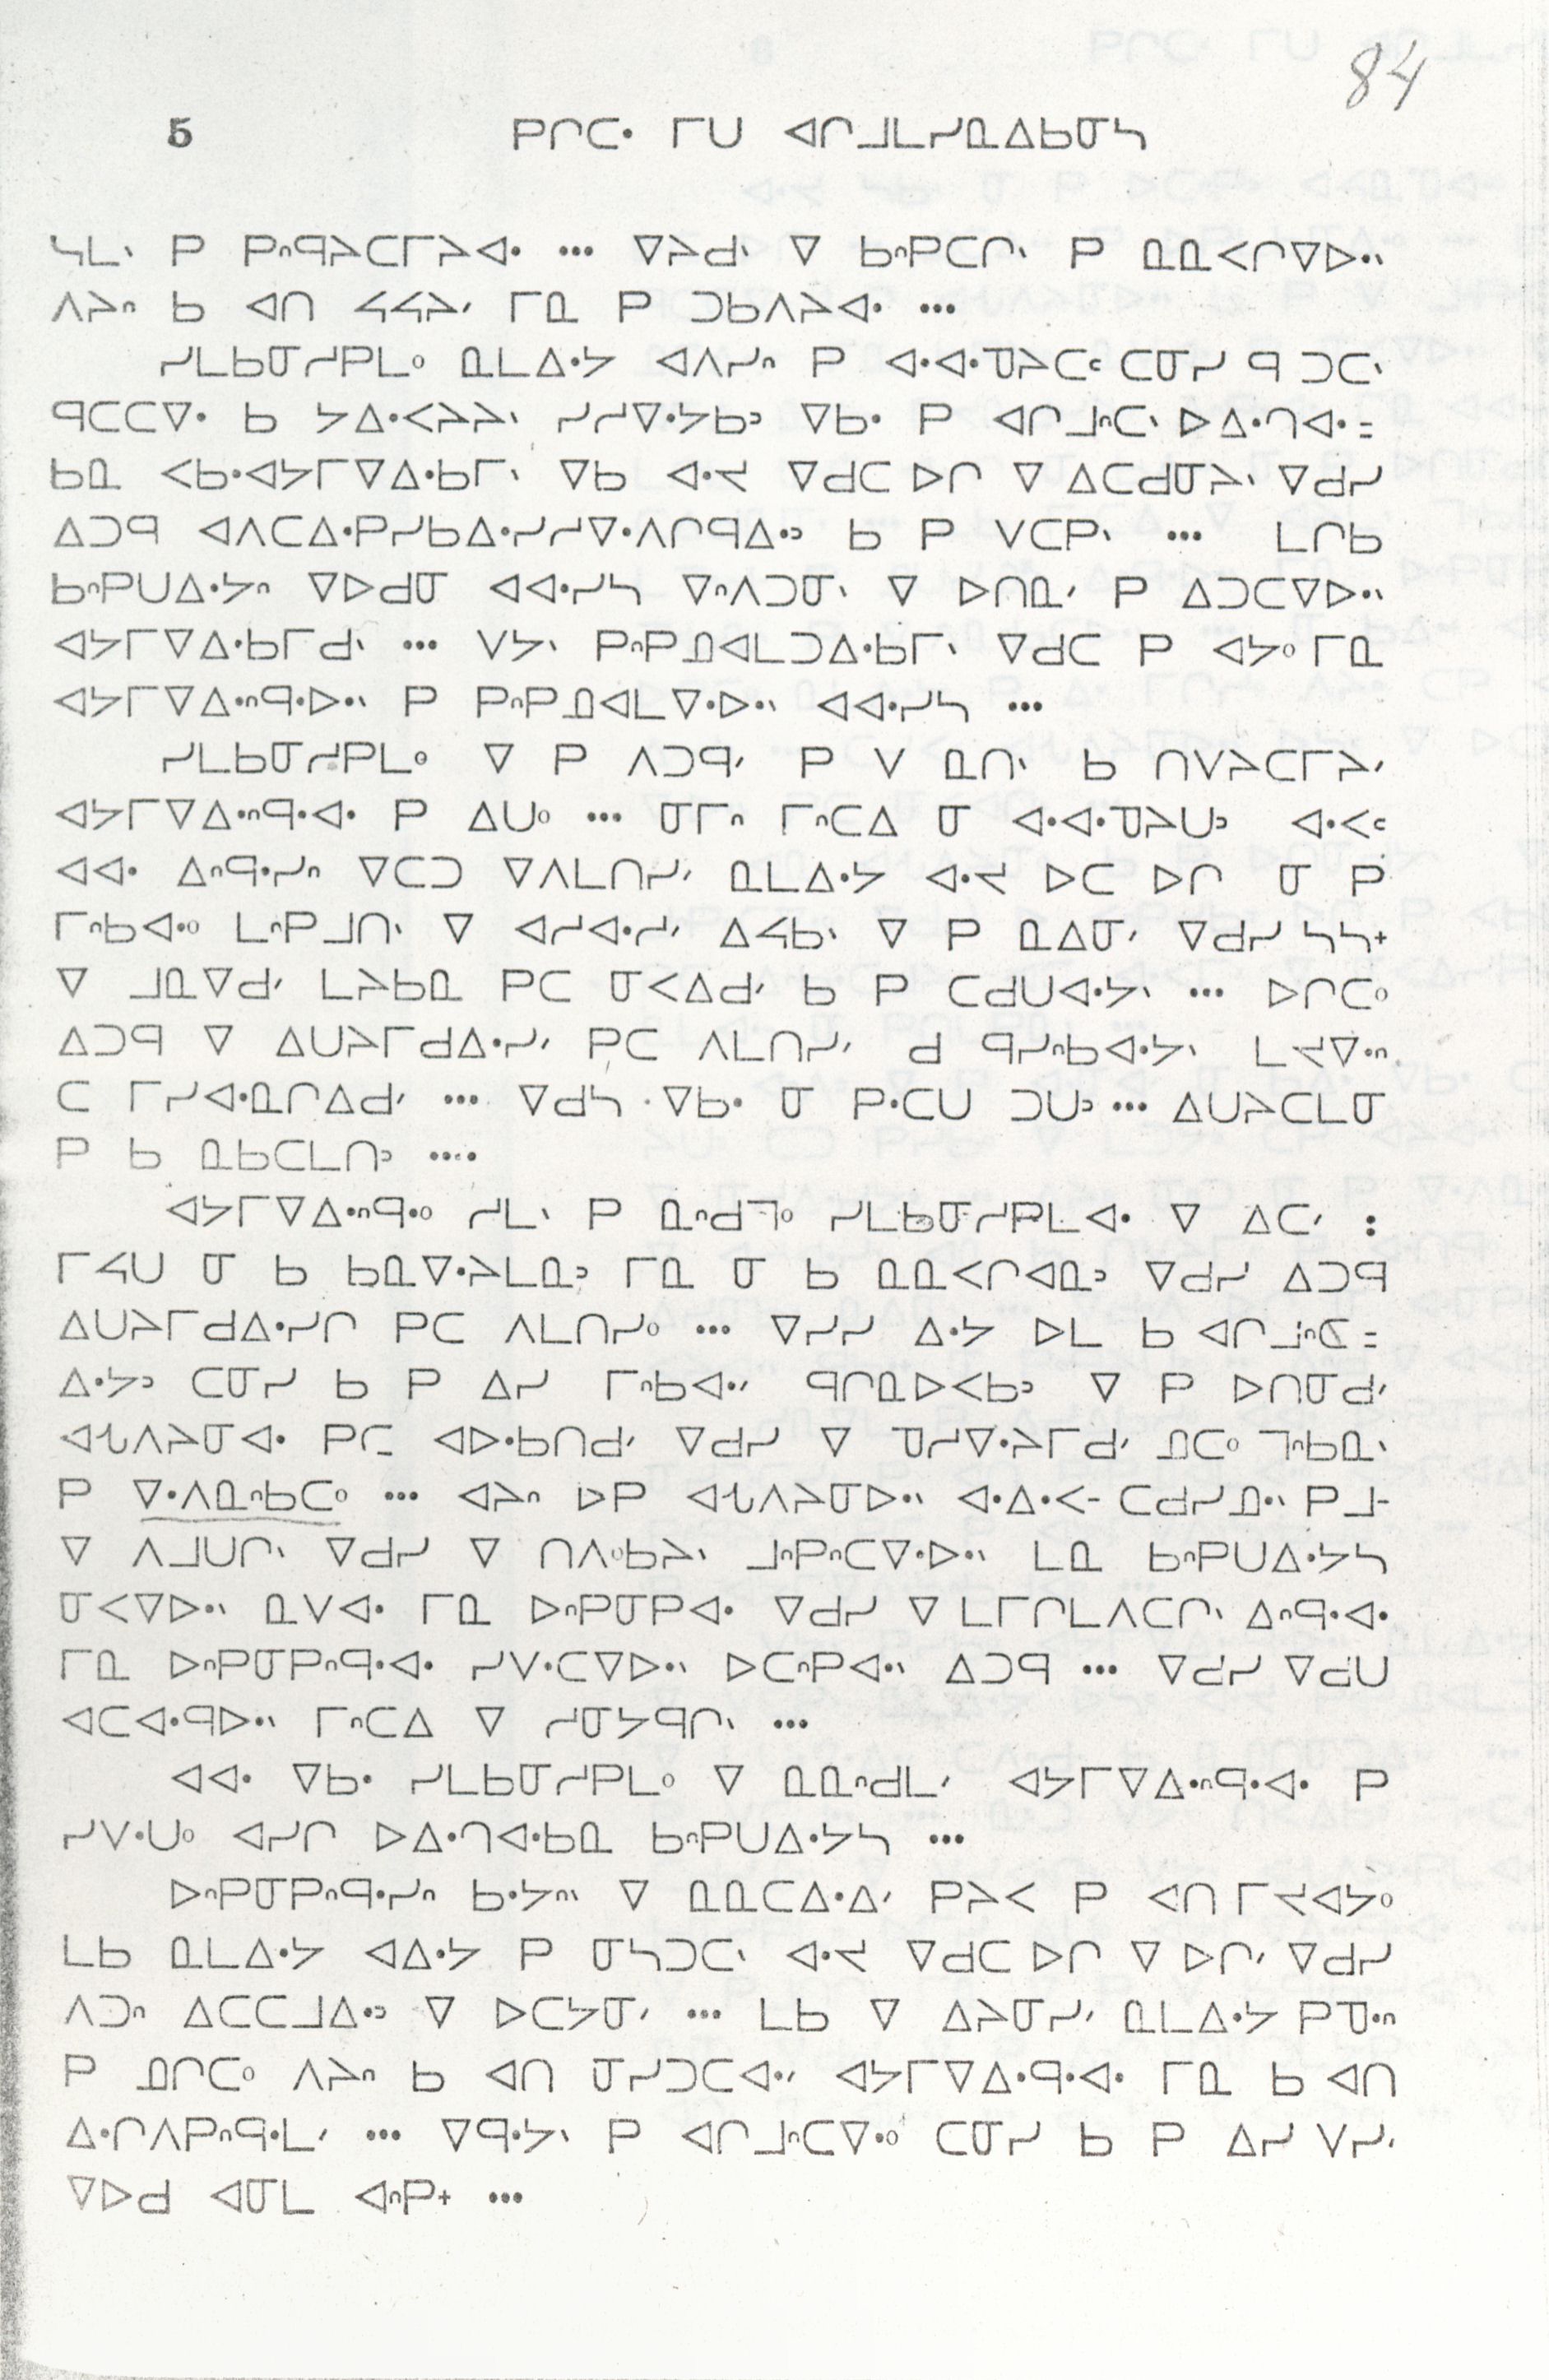 84
5 ᑭᒋᑕᐧ ᒥᑌ ᐊᒋᒧᒪᓯᓇᐃᑲᓂᓴ
ᓴᒪᐠ ᑭ ᑭᐢᑫᔨᑕᒥᔨᐊᐧ ... ᐁᔨᑯᐠ ᐁ ᑲᐢᑭᑕᒋᐠ ᑭ ᓇᓇᐸᒋᐁᐅᐧᐠ
ᐱᔨᐢ ᑲ ᐊᑎ ᔭᔭᔨᐟ ᒥᓇ ᑭ ᑐᑲᐱᔨᐊᐧ ...
ᓯᒪᑲᓂᓯᑭᒪᐤ ᓇᒪᐃᐧᔦ ᐊᐱᓯᐢ ᑭ ᐊᐧᐊᐧᓀᔨᑕᑦ ᑕᓂᓯ ᑫ ᑐᑕᐠ
ᑫᑕᑕᐁᐧ ᑲ ᔦᐃᐧᐸᔨᔨᐠ ᓯᓯᐁᐧᔦᑲᐣ ᐁᑲᐧ ᑭ ᐊᒋᒧᐢᑕᐠ ᐅᐃᐧᒉᐊᐧ =
ᑲᓇ ᐸᑲᐧᐊᔦᒥᐁᐃᐧᑲᒥᐠ ᐁᑲ ᐊᐧᔭ ᐁᑯᑕ ᐅᒋ ᐁ ᐃᑕᑯᓂᔨᐠ ᐁᑯᓯ
ᐃᑐᑫ ᐊᐱᑕᐃᐧᑭᓯᑲᐃᐧᓯᓯᐁᐧᐱᒋᑫᐃᐧᐣ ᑲ ᑭ ᐯᑕᑭᐠ ... ᒪᒋᑲ
ᑲᐢᑭᑌᐃᐧᔦᐢ ᐁᐅᑯᓂ ᐊᐊᐧᓯᓴ ᐁᐢᐱᑐᓂᐠ ᐁ ᐅᑎᓇᐟ ᑭ ᐃᑐᑕᐁᐅᐧᐠ
ᐊᔦᒥᐁᐃᐧᑲᒥᑯᐠ ... ᐯᔦᐠ ᑭᐢᑭᓄᐊᒪᑐᐃᐧᑲᒥᐠ ᐁᑯᑕ ᑭ ᐊᔦᐤ ᒥᓇ
ᐊᔦᒥᐁᐃᐧᐢᑫᐧᐅᐧᐠ ᑭ ᑭᐢᑭᓄᐊᒪᐁᐧᐅᐧᐠ ᐊᐊᐧᓯᓴ ...
ᓯᒪᑲᓂᓯᑭᒪᐤ ᐁ ᑭ ᐱᑐᑫᐟ ᑭ ᐯ ᓇᑎᐠ ᑲ ᑎᐯᔨᑕᒥᔨᐟ
ᐊᔦᒥᐁᐃᐧᐢᑫᐧᐊᐧ ᑭ ᐃᑌᐤ ... ᓂᒥᐢ ᒥᐢᑕᐃ ᓂ ᐊᐧᐊᐧᓀᔨᑌᐣ ᐊᐧᐸᑦ
ᐊᐊᐧ ᐃᐢᑫᐧᓯᐢ ᐁᑕᑐ ᐁᐱᒪᑎᓯᐟ ᓇᒪᐃᐧᔦ ᐊᐧᔭ ᐅᑕ ᐅᒋ ᓂ ᑭ
ᒥᐢᑲᐊᐧᐤ ᒪᐢᑭᒧᑎᐠ ᐁ ᐊᓯᐊᐧᓯᐟ ᐃᔭᑲᐠ ᐁ ᑭ ᓇᐃᓂᐟ ᐁᑯᓯ ᓴᓴᐩ
ᐁ ᒧᓇᐁᑯᐟ ᒪᔨᑲᓇ ᑭᑕ ᓂᐸᐃᑯᐟ ᑲ ᑭ ᑕᑯᑌᐊᐧᔦᐠ ... ᐅᒋᑕᐤ
ᐃᑐᑫ ᐁ ᐃᑌᔨᒥᑯᐃᐧᓯᐟ ᑭᑕ ᐱᒪᑎᓯᐟ ᑯ ᑫᓯᐢᑲᐊᐧᔦᐠ ᒪᔭᐁᐧᐢ
ᑕ ᒥᓯᐊᐧᓇᒋᐃᑯᐟ ... ᐁᑯᓴ ᐁᑲᐧ ᓂ ᑭᐧᑕᑌ ᑐᑌᐣ ... ᐃᑌᔨᑕᒪᓂ
ᑭ ᑲ ᓇᑲᑕᒪᑎᐣ ....
ᐊᔦᒥᐁᐃᐧᐢᑫᐧᐤ ᓯᒪᐠ ᑭ ᓇᐢᑯᒣᐤ ᓯᒪᑲᓂᓯᑭᒪᐊᐧ ᐁ ᐃᑕᐟ :
ᒥᔭᑌ ᓂ ᑲ ᑲᓇᐁᐧᔨᒪᓇᐣ ᒥᓇ ᓂ ᑲ ᓇᓇᐸᒋᐊᓇᐣ ᐁᑯᓯ ᐃᑐᑫ
ᐃᑌᔨᒥᑯᐃᐧᓯᒋ ᑭᑕ ᐱᒪᑎᓯᐤ ... ᐁᓯᓯ ᐃᐧᔦ ᐅᒪ ᑲ ᐊᒋᒧᐢᑕ =
ᐃᐧᔦᐣ ᑕᓂᓯ ᑲ ᑭ ᐃᓯ ᒥᐢᑲᐊᐧᐟ ᑫᒋᓇᐅᐸᑲᐣ ᐁ ᑭ ᐅᑎᓂᑯᐟ
ᐊᔨᐱᔨᓂᐊᐧ ᑭᑕ ᐊᐅᐧᑲᑎᑯᐟ ᐁᑯᓯ ᐁ ᓀᓯᐁᐧᔨᒥᑯᐟ ᓄᑕᐤ ᒣᐢᑲᓇᐠ
ᑭ ᐁᐧᐱᓇᐢᑲᑕᐤ ... ᐊᔨᐢ ᐅᑭ ᐊᔨᐱᔨᓂᐅᐧᐠ ᐊᐧᐃᐧᐸᐨ ᑕᑯᓯᓄᐧᐠ ᑭᒧᐨ
ᐁ ᐱᒧᑌᒋᐠ ᐁᑯᓯ ᐁ ᑎᐱᐢᑲᔨᐠ ᒧᐢᑭᐢᑕᐁᐧᐅᐧᐠ ᒪᓇ ᑲᐢᑭᑌᐃᐧᔦᓴ
ᓂᐸᐁᐅᐧᐠ ᓇᐯᐊᐧ ᒥᓇ ᐅᐢᑭᓂᑭᐊᐧ ᐁᑯᓯ ᐁ ᒪᒥᒋᒪᐱᑕᒋᐠ ᐃᐢᑫᐧᐊᐧ
ᒥᓇ ᐅᐢᑭᓂᑭᐢᑫᐧᐊᐧ ᓯᐯᐧᑕᐁᐅᐧᐠ ᐅᑕᐢᑭᐊᐧᐠ ᐃᑐᑫ ... ᐁᑯᓯ ᐁᑯᑌ
ᐊᑕᐊᐧᑫᐅᐧᐠ ᒥᐢᑕᐃ ᐁ ᓯᓂᔦᑫᒋᐠ ...
ᐊᐊᐧ ᐁᑲᐧ ᓯᒪᑲᓂᓯᑭᒪᐤ ᐁ ᓇᓇᐢᑯᒪᐟ ᐊᔦᒥᐁᐃᐧᐢᑫᐧᐊᐧ ᑭ
ᓯᐯᐧᑌᐤ ᐊᓯᒋ ᐅᐃᐧᒉᐊᐧᑲᓇ ᑲᐢᑭᑌᐃᐧᔦᓴ ...
ᐅᐢᑭᓂᑭᐢᑫᐧᓯᐢ ᑲᐧᔦᐢᐠ ᐁ ᓇᓇᑕᐃᐧᐃᐟ ᑭᔨᐸ ᑭ ᐊᑎ ᒥᔪᐊᔦᐤ
ᒪᑲ ᓇᒪᐃᐧᔦ ᐊᐃᐧᔦ ᑭ ᓂᓴᑐᑕᐠ ᐊᐧᔭ ᐁᑯᑕ ᐅᒋ ᐁ ᐅᒋᐟ ᐁᑯᓯ
ᐱᑐᐢ ᐃᑕᑕᒧᐃᐧᐣ ᐁ ᐅᑕᔦᓂᐟ ... ᒪᑲ ᐁ ᐃᔨᓂᓯᐟ ᓇᒪᐃᐧᔦ ᑭᓀᐧᐢ
ᑭ ᓄᒋᑕᐤ ᐱᔨᐢ ᑲ ᐊᑎ ᓂᓯᑐᑕᐊᐧᐟ ᐊᔦᒥᐁᐃᐧᑫᐧᐊᐧ ᒥᓇ ᑲ ᐊᑎ
ᐃᐧᒋᐱᑭᐢᑫᐧᒪᐟ ... ᐁᑫᐧᔦᐠ ᑭ ᐊᒋᒧᐢᑕᐁᐧᐤ ᑕᓂᓯ ᑲ ᑭ ᐃᓯ ᐯᓯᐟ
ᐁᐅᑯ ᐊᓂᒪ ᐊᐢᑭᐩ ...